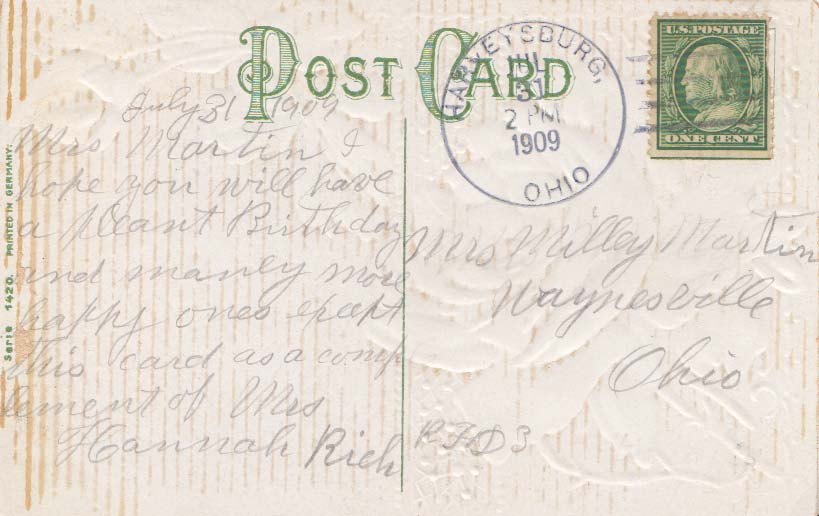 POST CARD
HARVEYSBURG,
JUL
31
2 PM
1909
OHIO
U.S. POSTAGE
ONE CENT
Serie 1420. PRINTED IN GERMANY.
July 31 1909
Mrs Martin I
hope you will have
a pleant Birthday
and manly more
happy ones except
this card as a comp
lement of Mrs
Hannah Rich
Mrs Milley Martin
Waynesville
Ohio
RFD 3